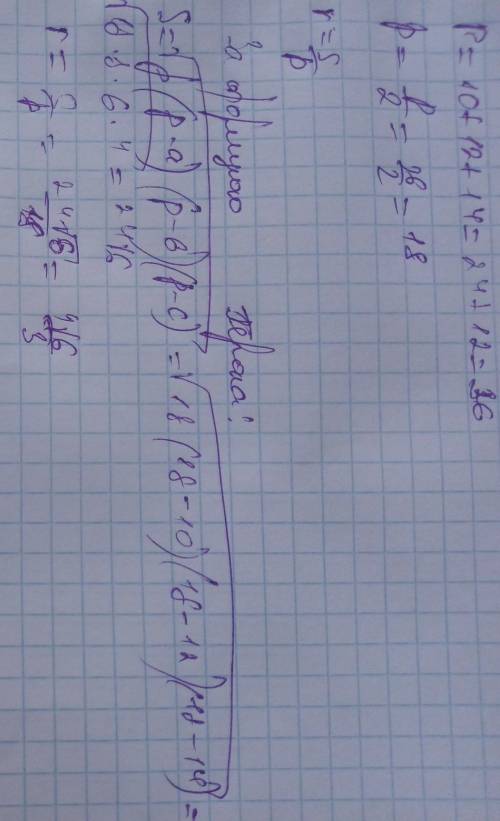 P = 10 + 12 + 14 = 24 + 12 = 36
p = P/2 = 36/2 = 18
r = S/p
За формулою Герона:
S = √p(p-a)(p-b)(p-c) = √18(18-10)(18-12)(18-14) =
√18·8·6·4 = 24√6
r = S/p = 24√6/18 = 4√6/3